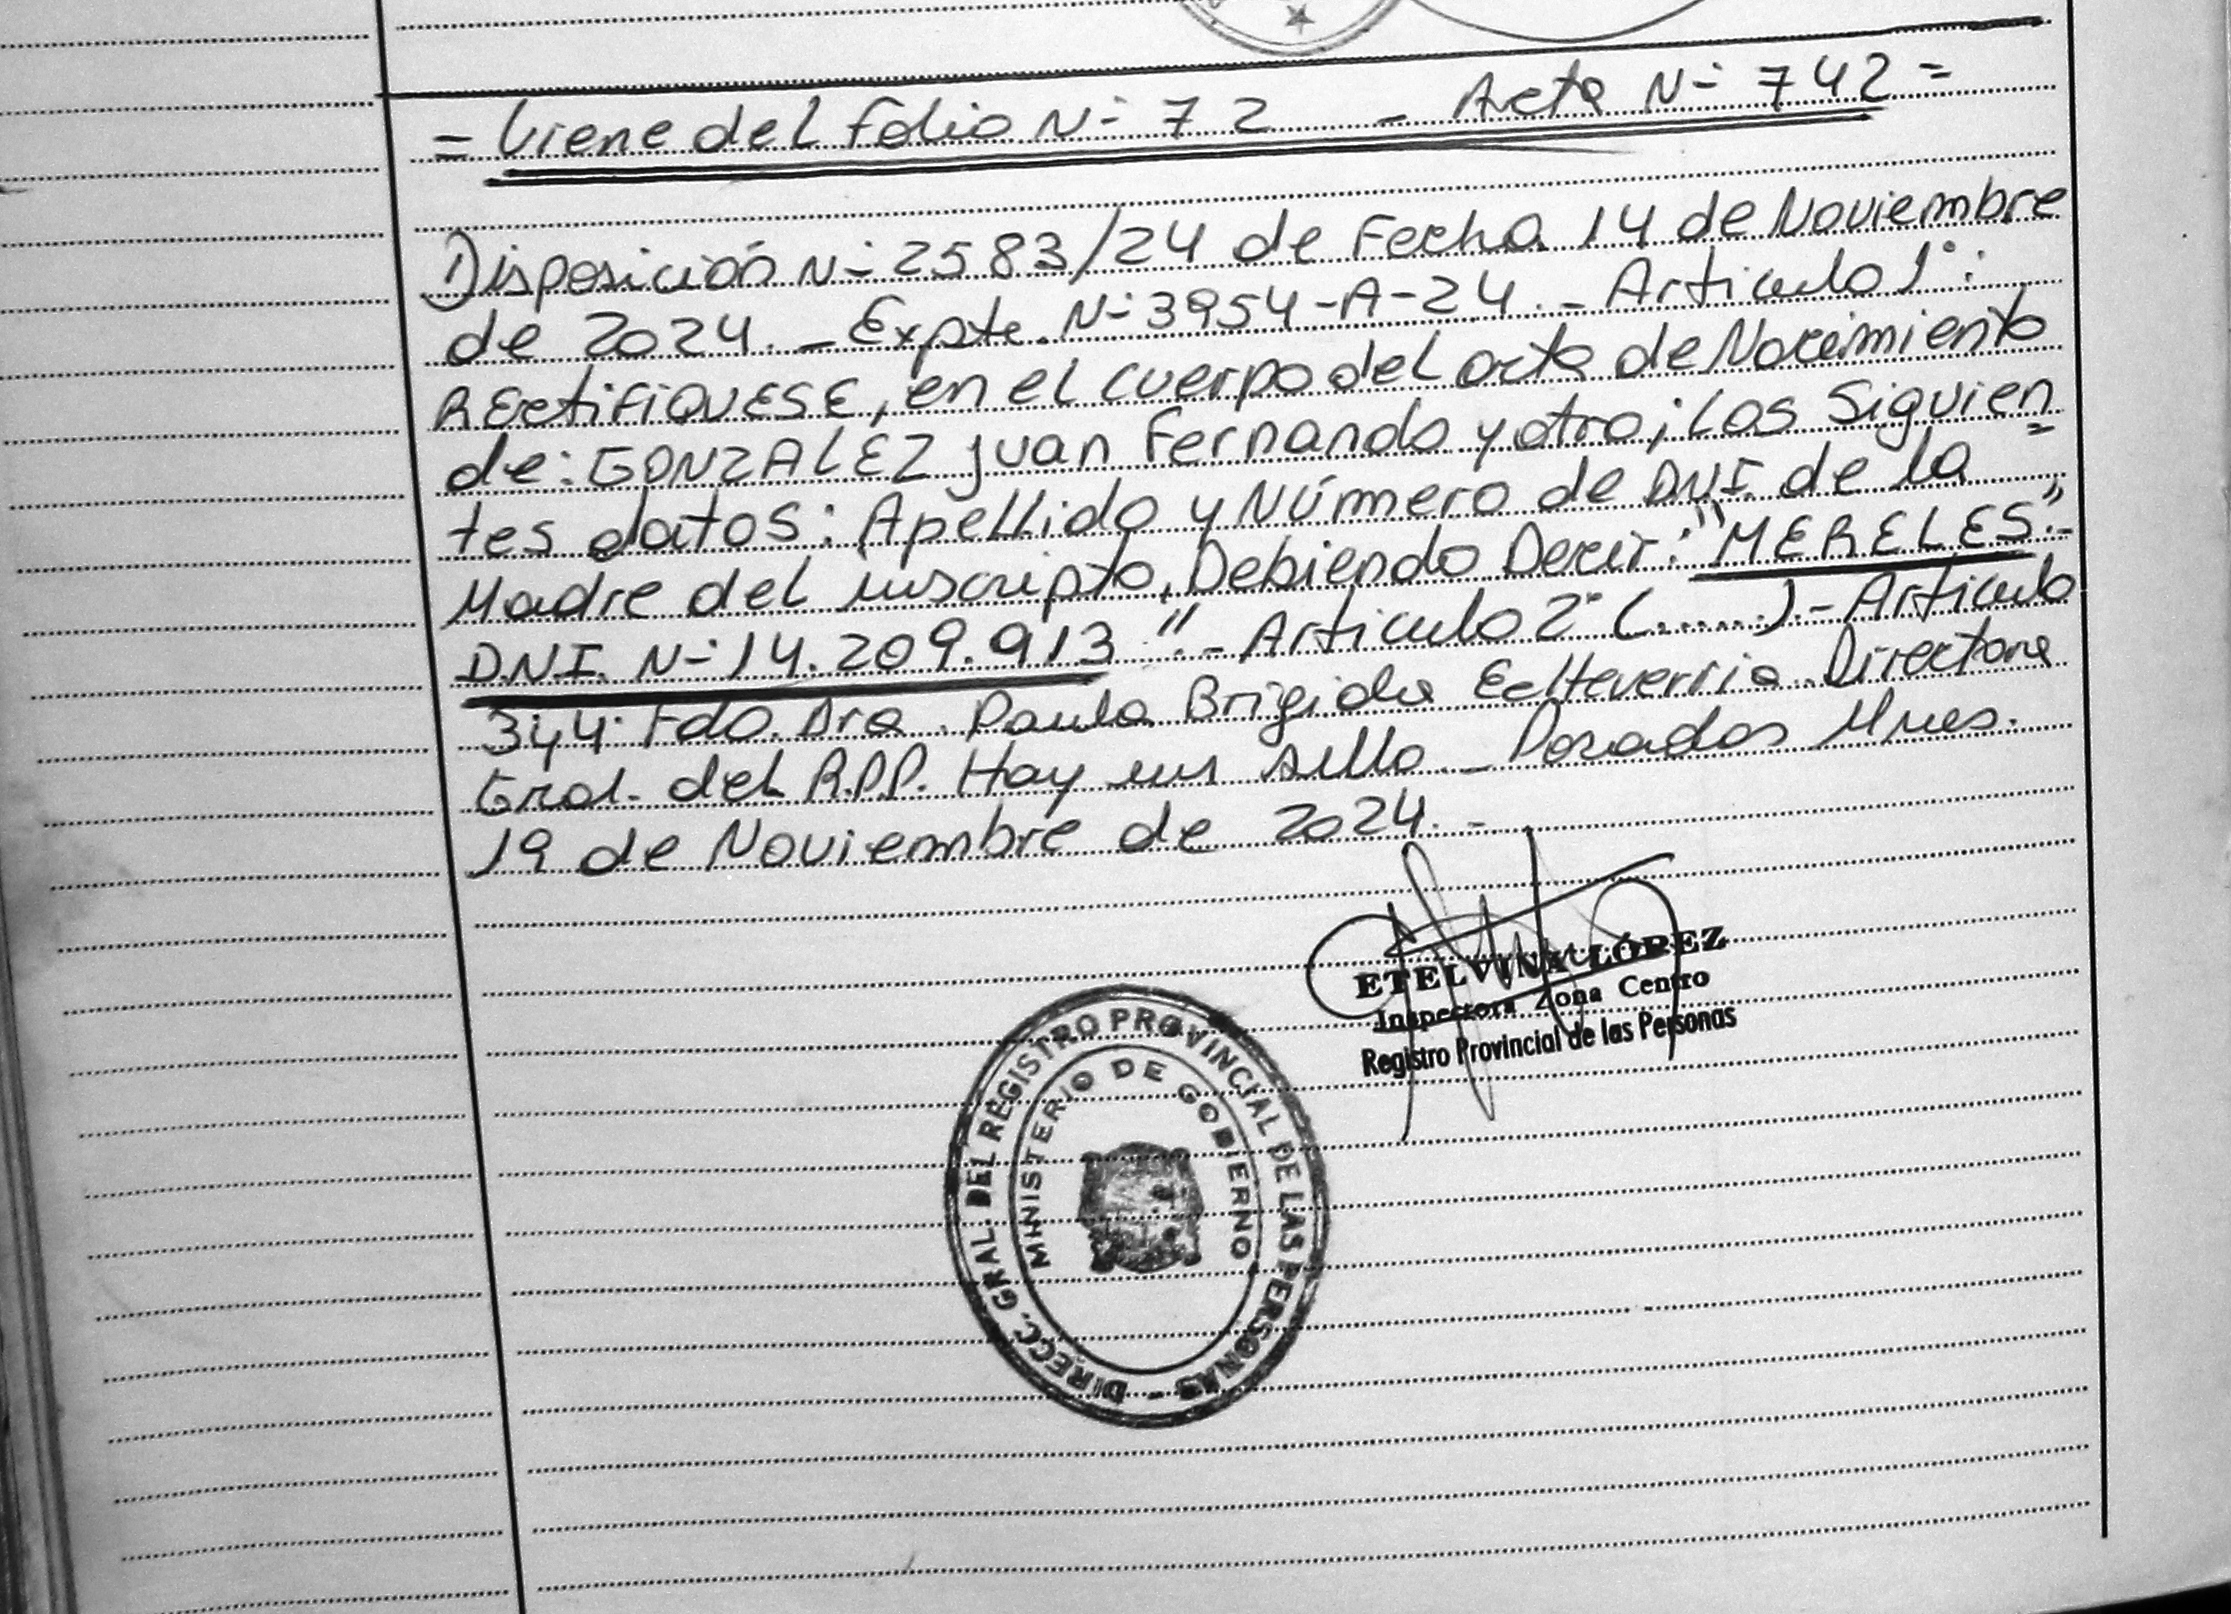 = Viene del folio N° 72 - Acta N° 742 =
Disposición N° 2583/24 de Fecha 14 de Noviembre
de 2024. - Expte. N° 3954-A-24. - Articulo 1°:
RECTIFIQUESE, en el cuerpo del acta de Nacimiento
de: GONZALEZ Juan Fernando y otro; Los Siguien=
tes datos: Apellido y Número de DNI. de la
Madre del inscripto, Debiendo Decir: "MERELES".-
D.N.I. N° 14.209.913".- Articulo 2° (......).- Articulo
3 y 4. Fdo. Dra. Paula Brigida Echeverria Directora
Gral. del R.P.P. Hay un sello. - Posadas Mnes.
19 de Noviembre de 2024.-
ETELVINA LÓPEZ
Inspectora Zona Centro
Registro Provincial de las Personas
DIRECC. GRAL. DEL REGISTRO PROVINCIAL DE LAS PERSONAS -
MINISTERIO DE GOBIERNO